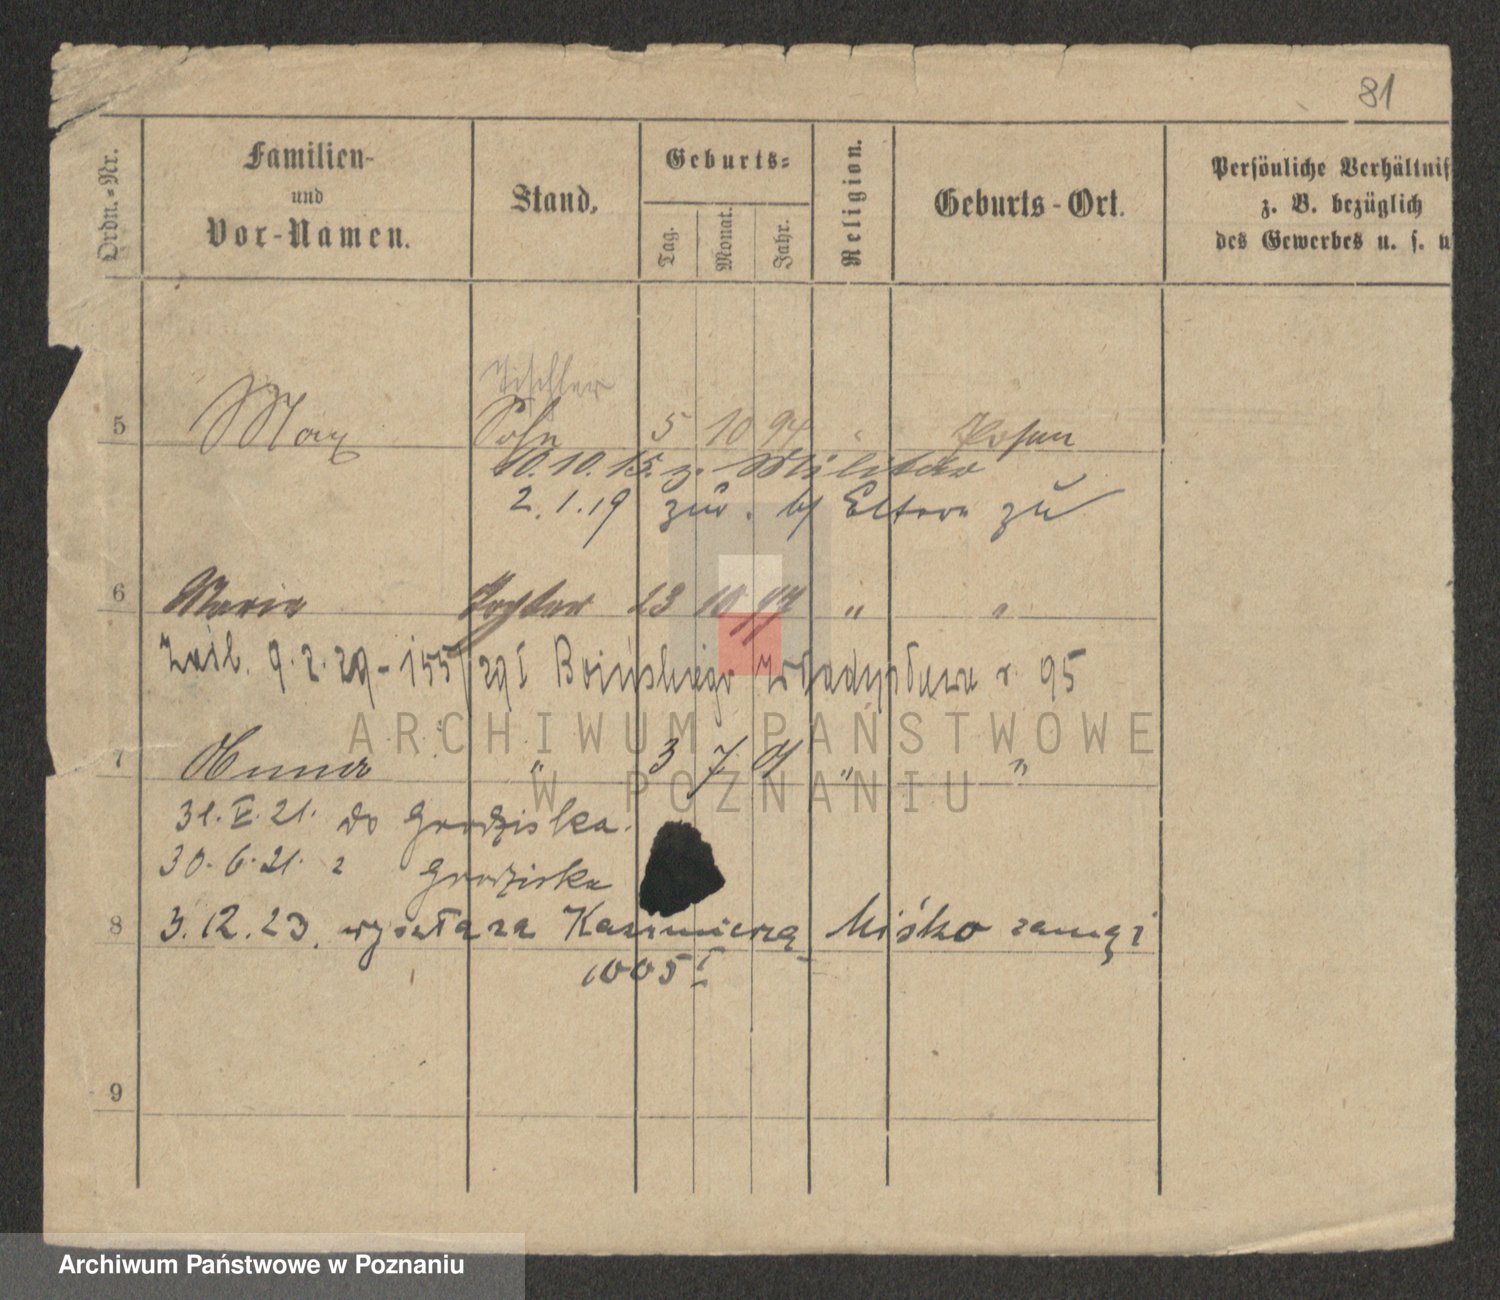 81
Ordn.-Nr.
Familien-
und
Vor-Namen.
Stand.
Geburts-
Tag.
Monat.
Jahr.
Religion.
Geburts-Ort.
Persönliche Verhältnis
z. B. bezüglich
des Gewerbes u. s. w
Tischler
5 Max Sohn 5 10 94 Posen
10.10.15. z. Militär
2.1.19 zur. b/ Eltern zu
6 Marie Tochter 23 10 97 " "
9.2.29 - 155 Boińskiego Władysława r. 95
ARCHIWUM PAŃSTWOWE
7 Anna " 3 7 01 " "
W POZNANIU
31.V.21. do Grodziska.
30.6.21. z Grodziska
8 3.12.23. wyszła za Kazimierza Miśko zamąż
1005 I
9
Archiwum Państwowe w Poznaniu